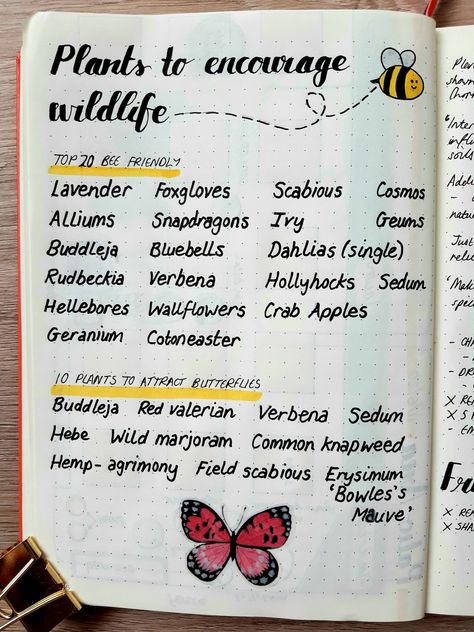 Plants to encourage
wildlife
TOP 20 BEE FRIENDLY
Lavender Foxgloves Scabious Cosmos
Alliums Snapdragons Ivy Geums
Buddleja Bluebells Dahlias (single)
Rudbeckia Verbena Hollyhocks Sedum
Hellebores Wallflowers Crab Apples
Geranium Cotoneaster
10 PLANTS TO ATTRACT BUTTERFLIES
Buddleja Red valerian Verbena Sedum
Hebe Wild marjoram Common knapweed
Hemp-agrimony Field scabious Erysimum
'Bowles's
Mauve'